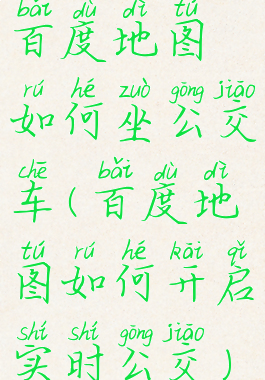 bǎi dù dì tú
百度地图
rú hé zuò gōng jiāo
如何坐公交
chē bǎi dù dì
车(百度地
tú rú hé kāi qǐ
图如何开启
shí shí gōng jiāo
实时公交)